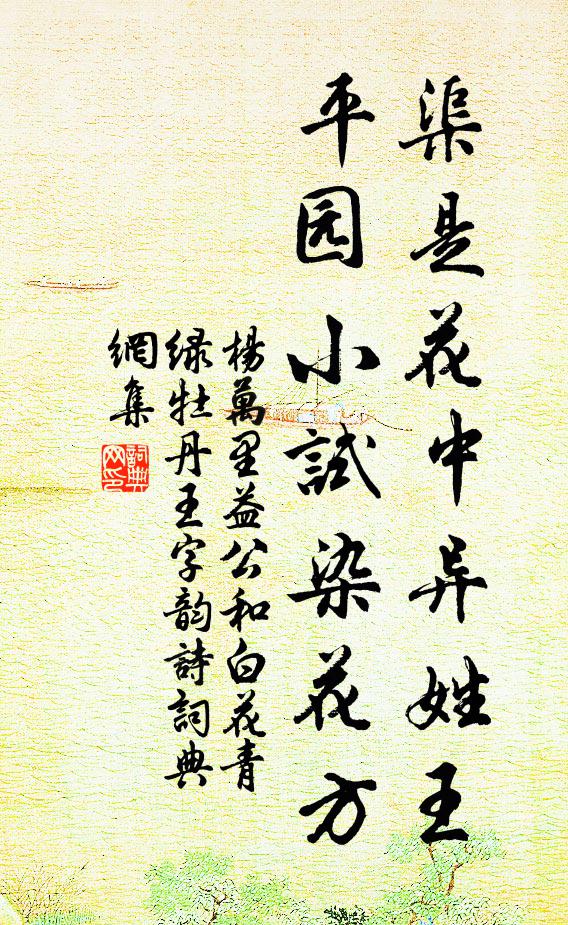 渠是花中异姓王
平园小试染花方
楊萬里益公和白花青
緑牡丹王字韵詩詞典
網集
詞典
网印